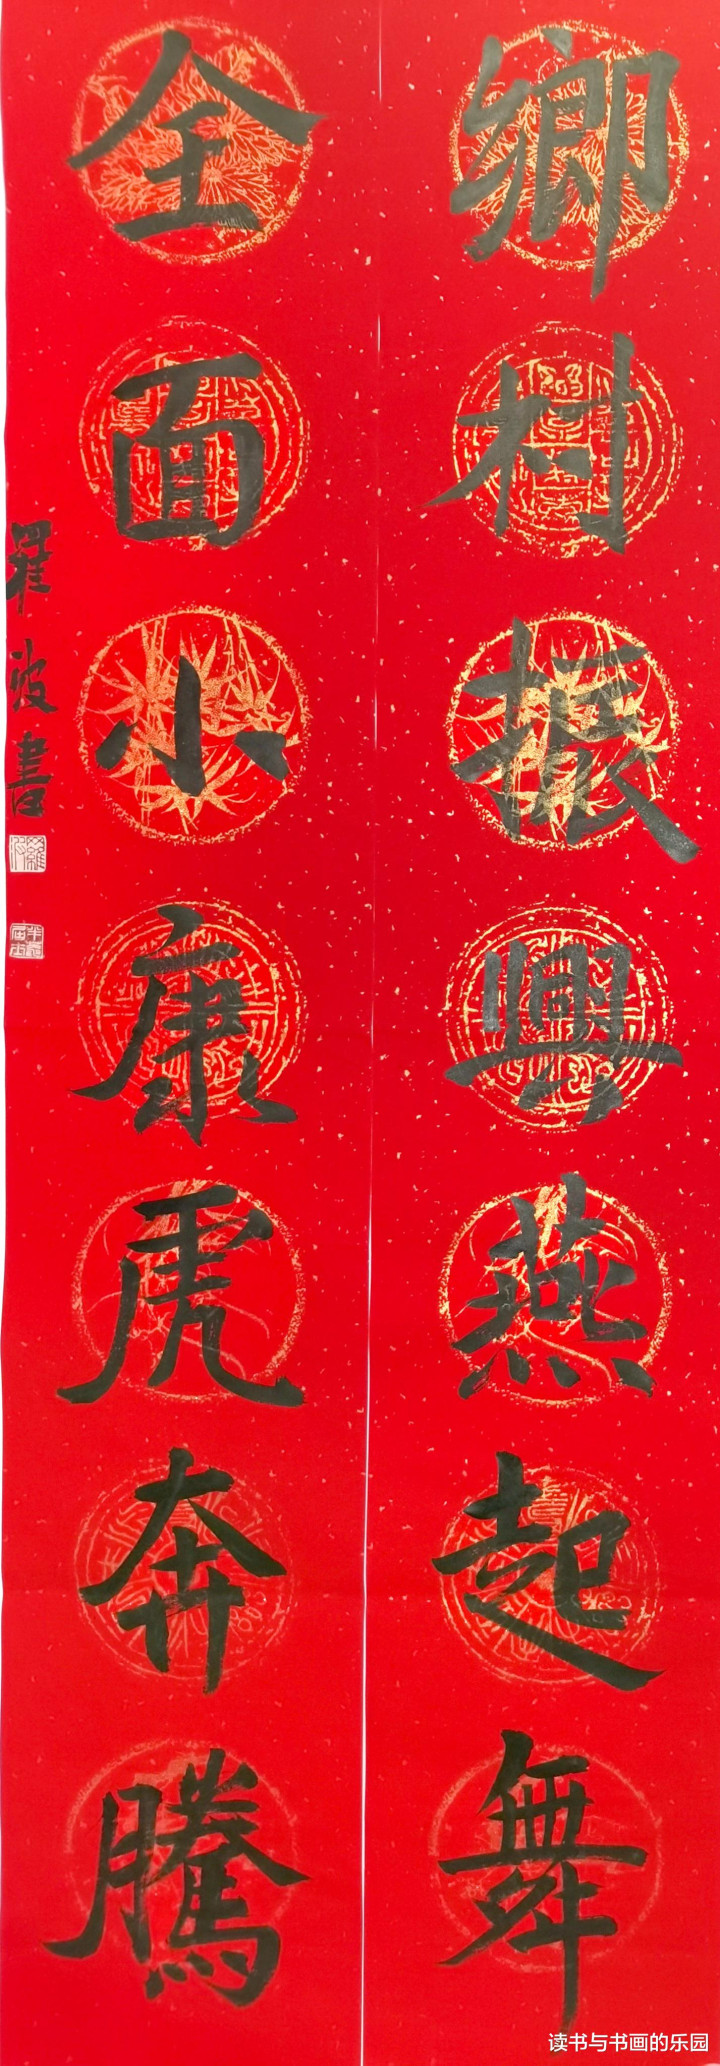 鄉村振興燕起舞
全面小康虎奔騰
羅波書
读书与书画的乐园